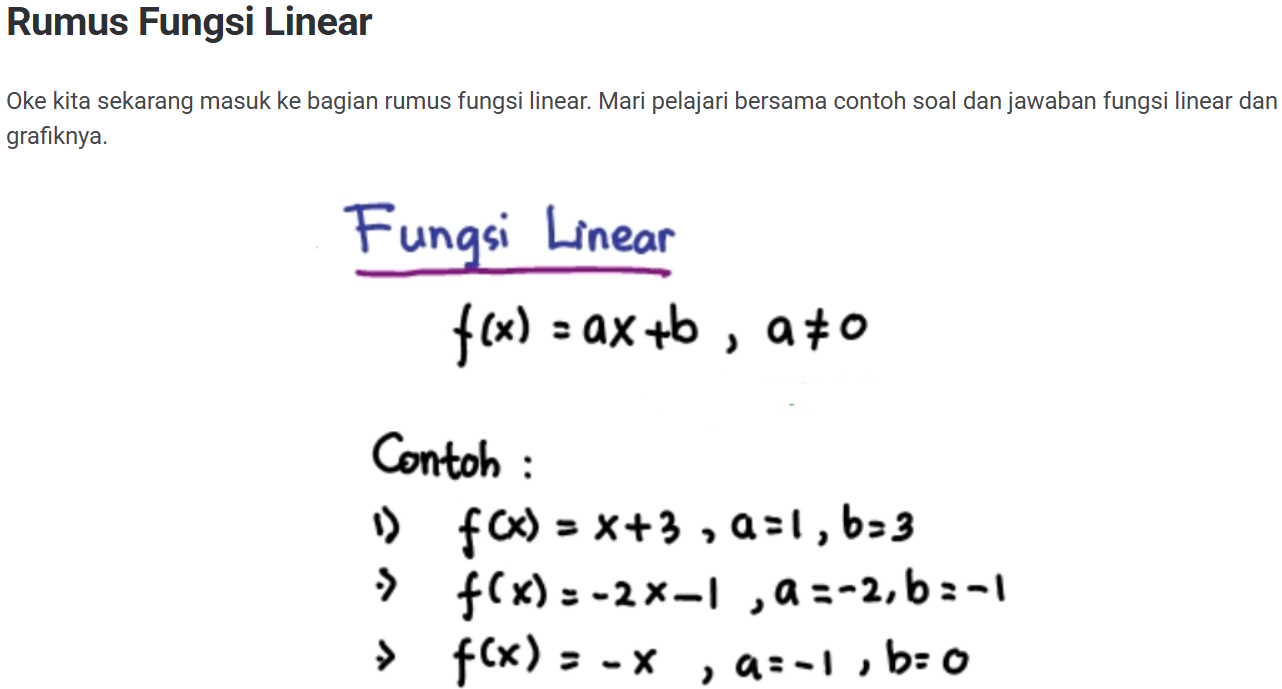 Rumus Fungsi Linear
Oke kita sekarang masuk ke bagian rumus fungsi linear. Mari pelajari bersama contoh soal dan jawaban fungsi linear dan
grafiknya.
Fungsi Linear
f(x) = ax+b , a≠0
Contoh :
1) f(x) = x+3 , a=1, b=3
·) f(x) = -2x-1 , a=-2, b=-1
·) f(x) = -x , a=-1, b=0